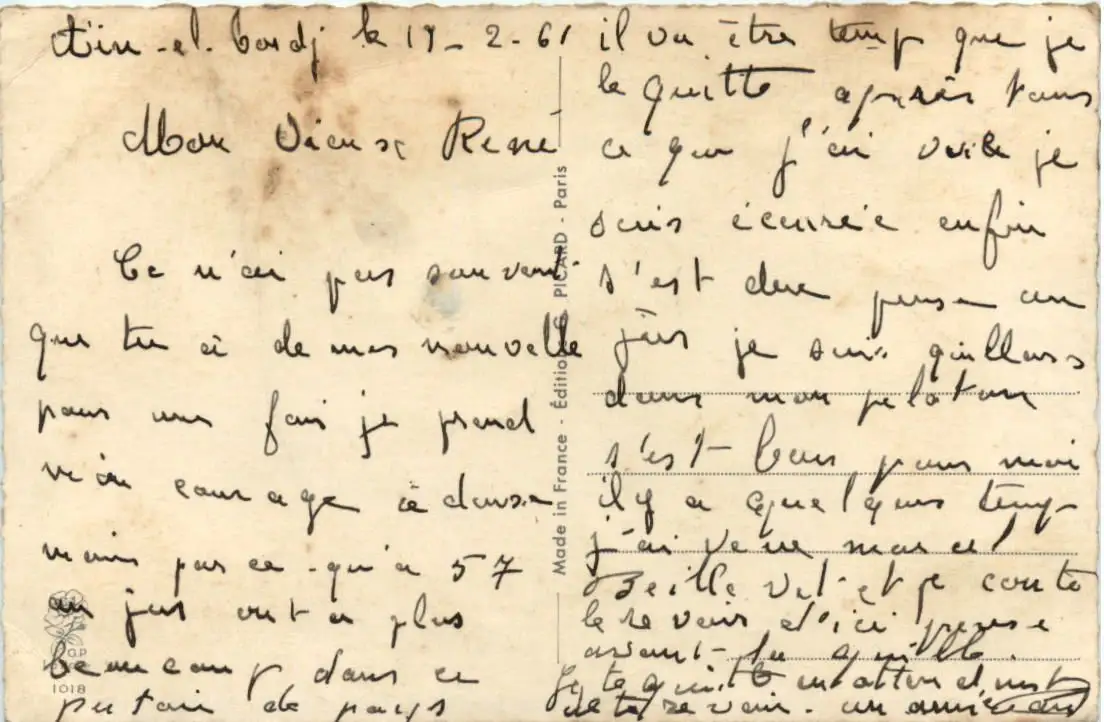 Aïn-el-Bordj le 17-2-61
Mon Vieux René
Ce n'ai pas souvent
que tu à de mes nouvelle
pour une fois je prend
mon courage à
mains parce-qu'a 57
au jus ont a plus
beaucoup dans ce
putain de pays
il va être temp que je
le quitte après tous
ce que j'ai je
suis écurée enfin
s'est dure pense au
jus je suis
dans mon peloton
s'est bon pour moi
il y a quelques temp
j'ai venue marcel
et je conte
le revoir d'ici pense
avant la quille.
Je te quitte en attendent
de te revoir. un ami
Made in France - Édition G. PICARD - Paris
G.P
1018